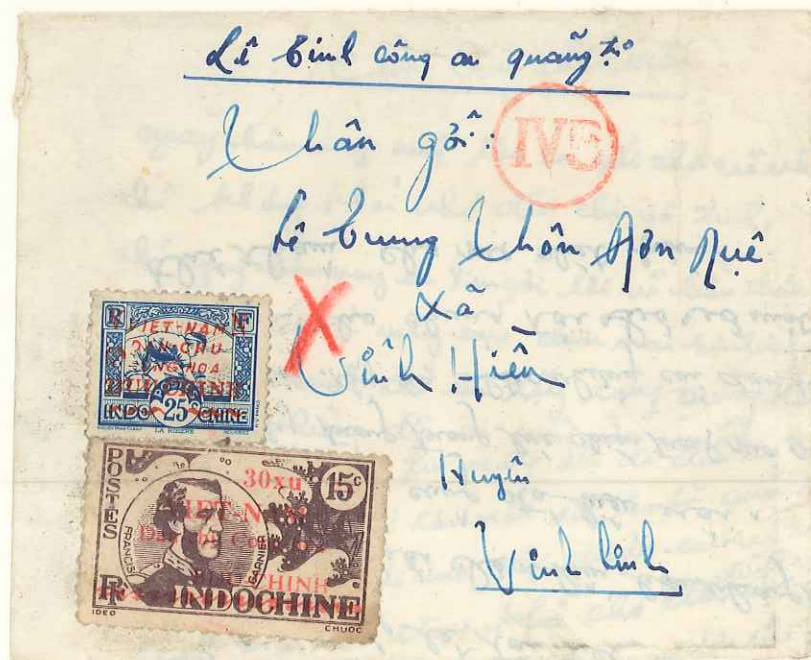 Lê Bình công an quảng trị
Thân gởi:
IV5
Lê Cung Thôn
Xã
Vĩnh Hiền
Huyện
Vĩnh linh
R F
VIET-NAM
DAN-CHU
CONG-HOA
BUU-CHINH
INDO 25 CHINE
LA RIZIERE
POSTES
15c
30 xu
VIET-NAM
Dan-chu Cong-hoa
BUU-CHINH
FRANCIS GARNIER
RF INDOCHINE
IDEO
CHUOC